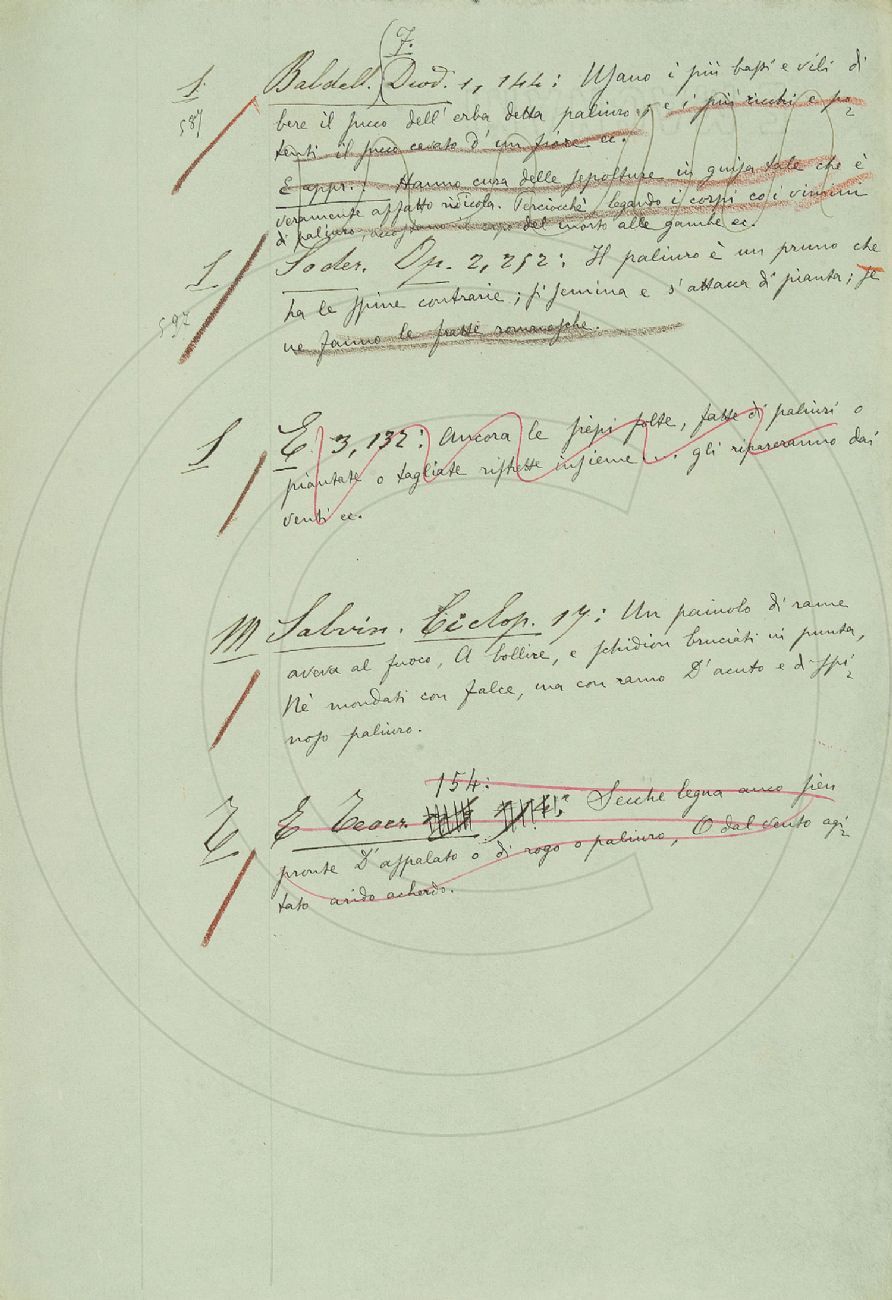 F.
1. Baldell. Diod. 1, 144: Usano i più bassi e vili di
587
bere il succo dell' erba detta paliuro, e i più ricchi e po=
tenti il succo cavato d' un fiore ec.
E appr.: Hanno cura delle sepolture in guisa tale che è
veramente affatto ridicola. Perciocchè, legando i corpi co i vimini
di paliuro, accostano il capo del morto alle gambe ec.
S Soder. Op. 2, 252: Il paliuro è un pruno che
597
ha le spine contrarie; si semina e s' attacca di pianta; se
ne fanno le fratte romanesche.
S E 3, 132: Ancora le siepi folte, fatte di paliuri o
piantate o tagliate rifitte insieme ... gli ripareranno dai
venti ec.
M Salvin. Ciclop. 17: Un paiuolo di rame
aveva al fuoco, A bollire, e schidion bruciati in punta,
Nè mondati con falce, ma con ramo D' acuto e di spi=
noso paliuro.
154:
T E Teocr. Secche legna anco sien
pronte D' aspalato o di rogo o paliuro, O dal vento agi=
tato arido acherdo.